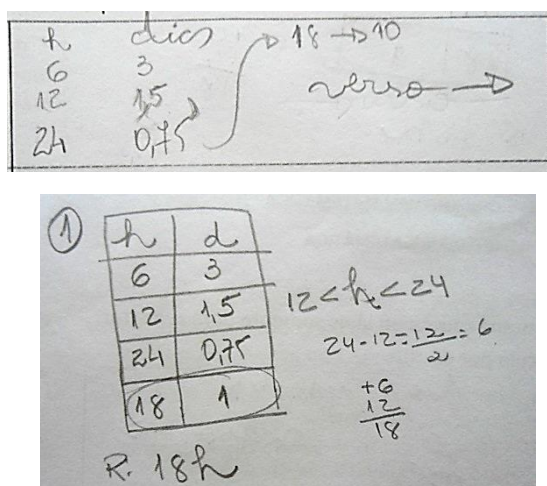 h dias
6 3
12 1,5
24 0,75
18 → 10
verso →
1
h d
6 3
12 1,5
24 0,75
18 1
12 < h < 24
24-12=12/2=6
+6
12
18
R. 18h